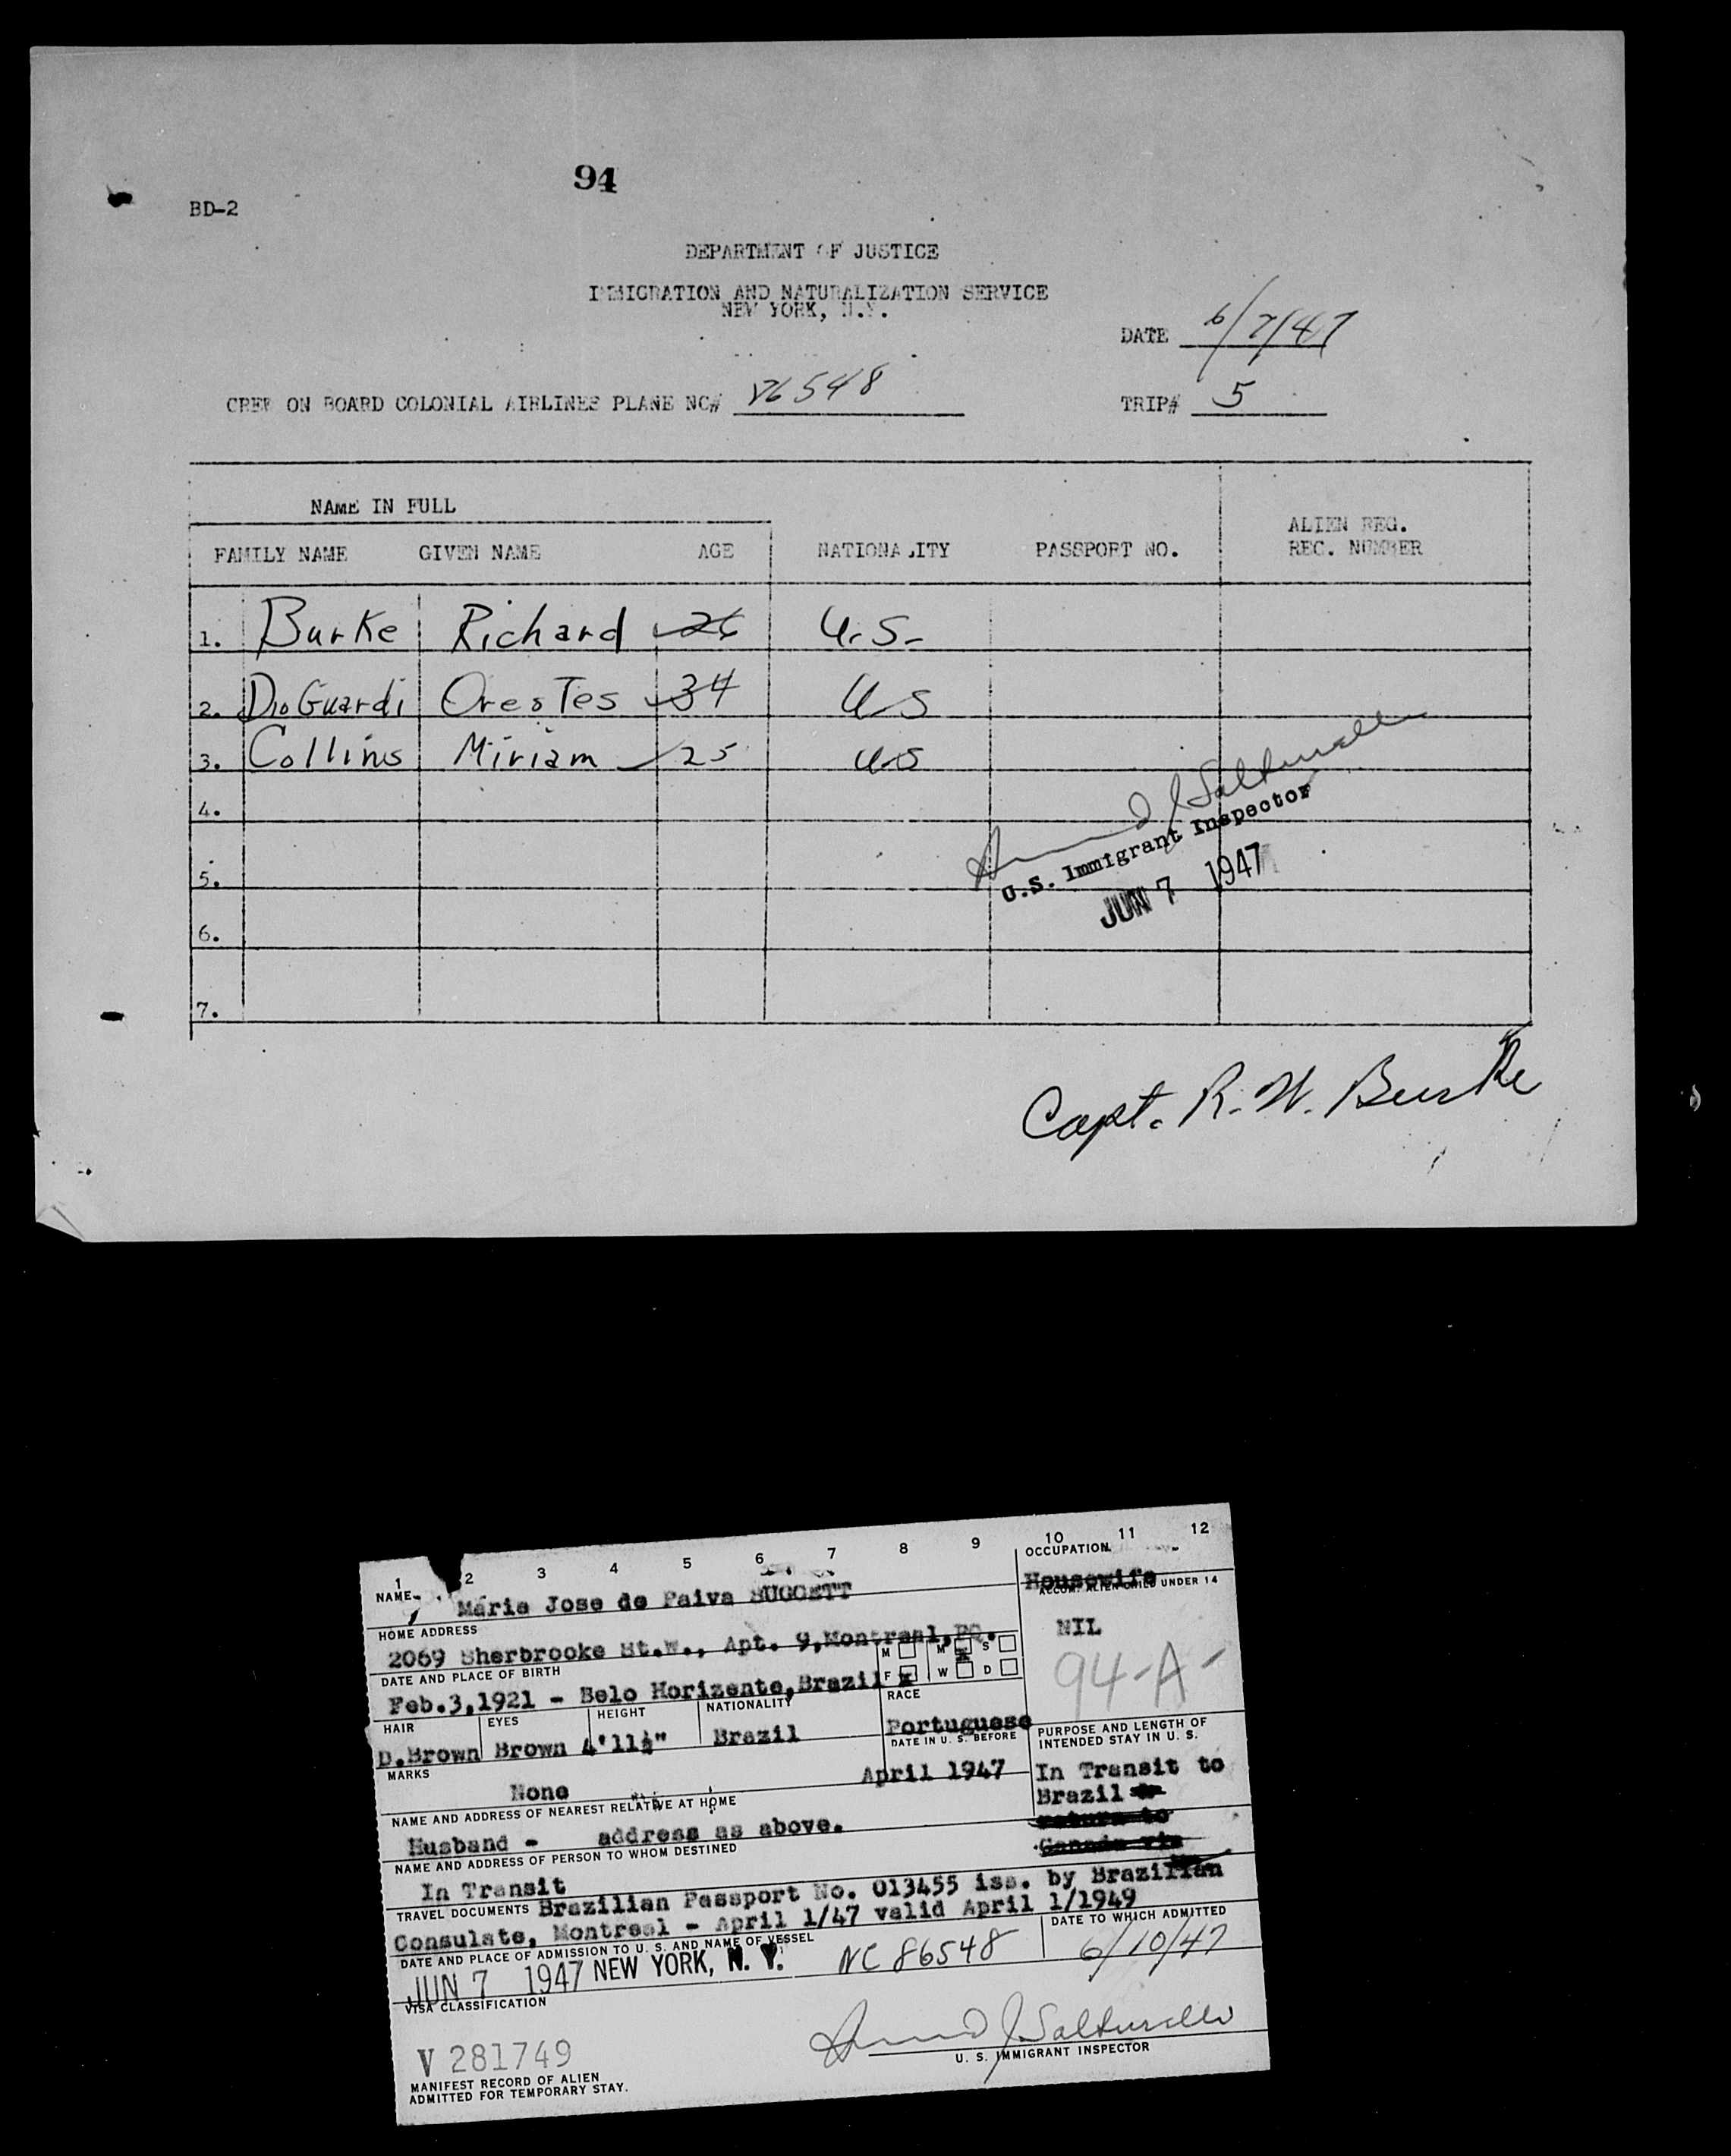 94
BD-2
DEPARTMENT OF JUSTICE
IMMIGRATION AND NATURALIZATION SERVICE
NEW YORK, N.Y.
DATE 6/7/47
CREW ON BOARD COLONIAL AIRLINES PLANE NC# 86548
TRIP# 5
NAME IN FULL
FAMILY NAME GIVEN NAME AGE NATIONALITY PASSPORT NO. ALIEN REG. REC. NUMBER
1. Burke Richard 26 U.S.
2. DioGuardi Orestes 34 U S
3. Collins Miriam 25 U.S
4.
U.S. Immigrant Inspector
5.
JUN 7 1947
6.
7.
Capt. R. W. Burke
1 2 3 4 5 6 7 8 9 10 11 12
NAME Maria Jose de Paiva SUGGETT
OCCUPATION
Housewife
ACCOM. ALIEN CHILD UNDER 14
NIL
94-A-
HOME ADDRESS
2069 Sherbrooke St.W., Apt. 9,Montreal,PQ.
M M S
F X W D
X
DATE AND PLACE OF BIRTH
Feb.3,1921 - Belo Horizente,Brazil
HAIR EYES HEIGHT NATIONALITY RACE
D.Brown Brown 4'11½" Brazil Portuguese
DATE IN U. S. BEFORE
April 1947
PURPOSE AND LENGTH OF
INTENDED STAY IN U. S.
In Transit to
Brazil
return to
Canada via
MARKS
None
NAME AND ADDRESS OF NEAREST RELATIVE AT HOME
Husband - address as above.
NAME AND ADDRESS OF PERSON TO WHOM DESTINED
In Transit
TRAVEL DOCUMENTS Brazilian Passport No. 013455 iss. by Brazilian
Consulate, Montreal - April 1/47 valid April 1/1949
DATE AND PLACE OF ADMISSION TO U. S. AND NAME OF VESSEL
DATE TO WHICH ADMITTED
JUN 7 1947 NEW YORK, N. Y. NC 86548 6/10/47
VISA CLASSIFICATION
V 281749
U. S. IMMIGRANT INSPECTOR
MANIFEST RECORD OF ALIEN
ADMITTED FOR TEMPORARY STAY.